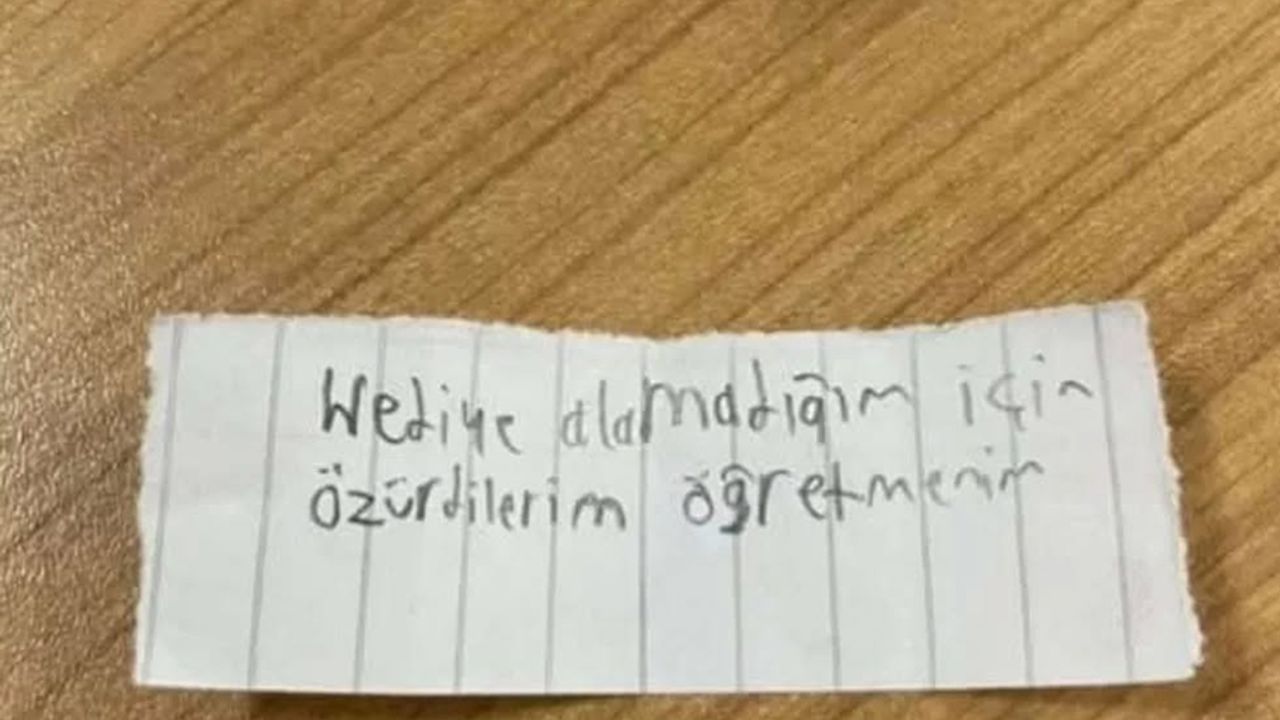 Hediye alamadığım için
özürdilerim öğretmenim